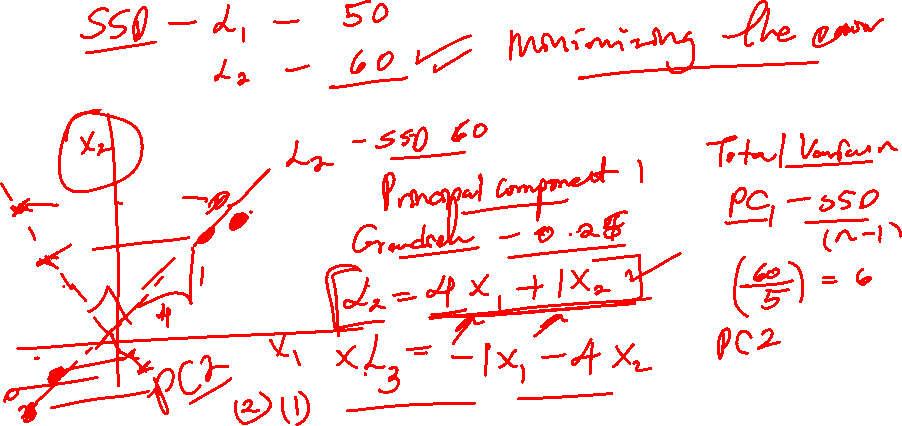 SSD - L1 - 50
L2 - 60
Minimizing the error
X2
L2 - SSD 60
Principal component 1
- 0.25
L2 = 4 X1 + 1X2
X1
L3 = -1X1 - 4 X2
4
1
PC2
(2) (1)
Total Varian
PC1 - SSD
(n-1)
(60/5) = 6
PC2